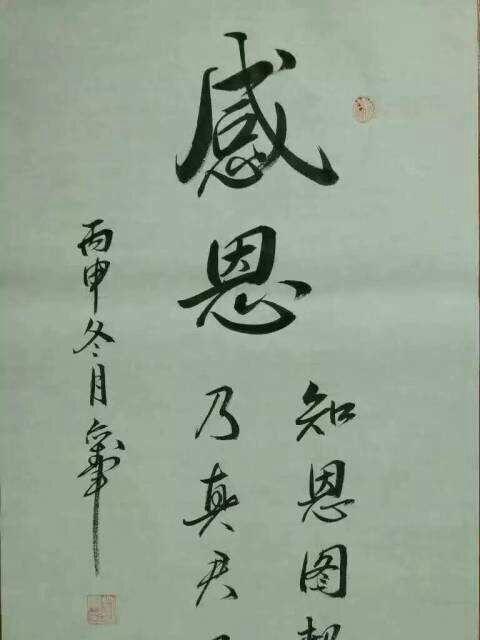 感恩
知恩图
乃真君
丙申冬月